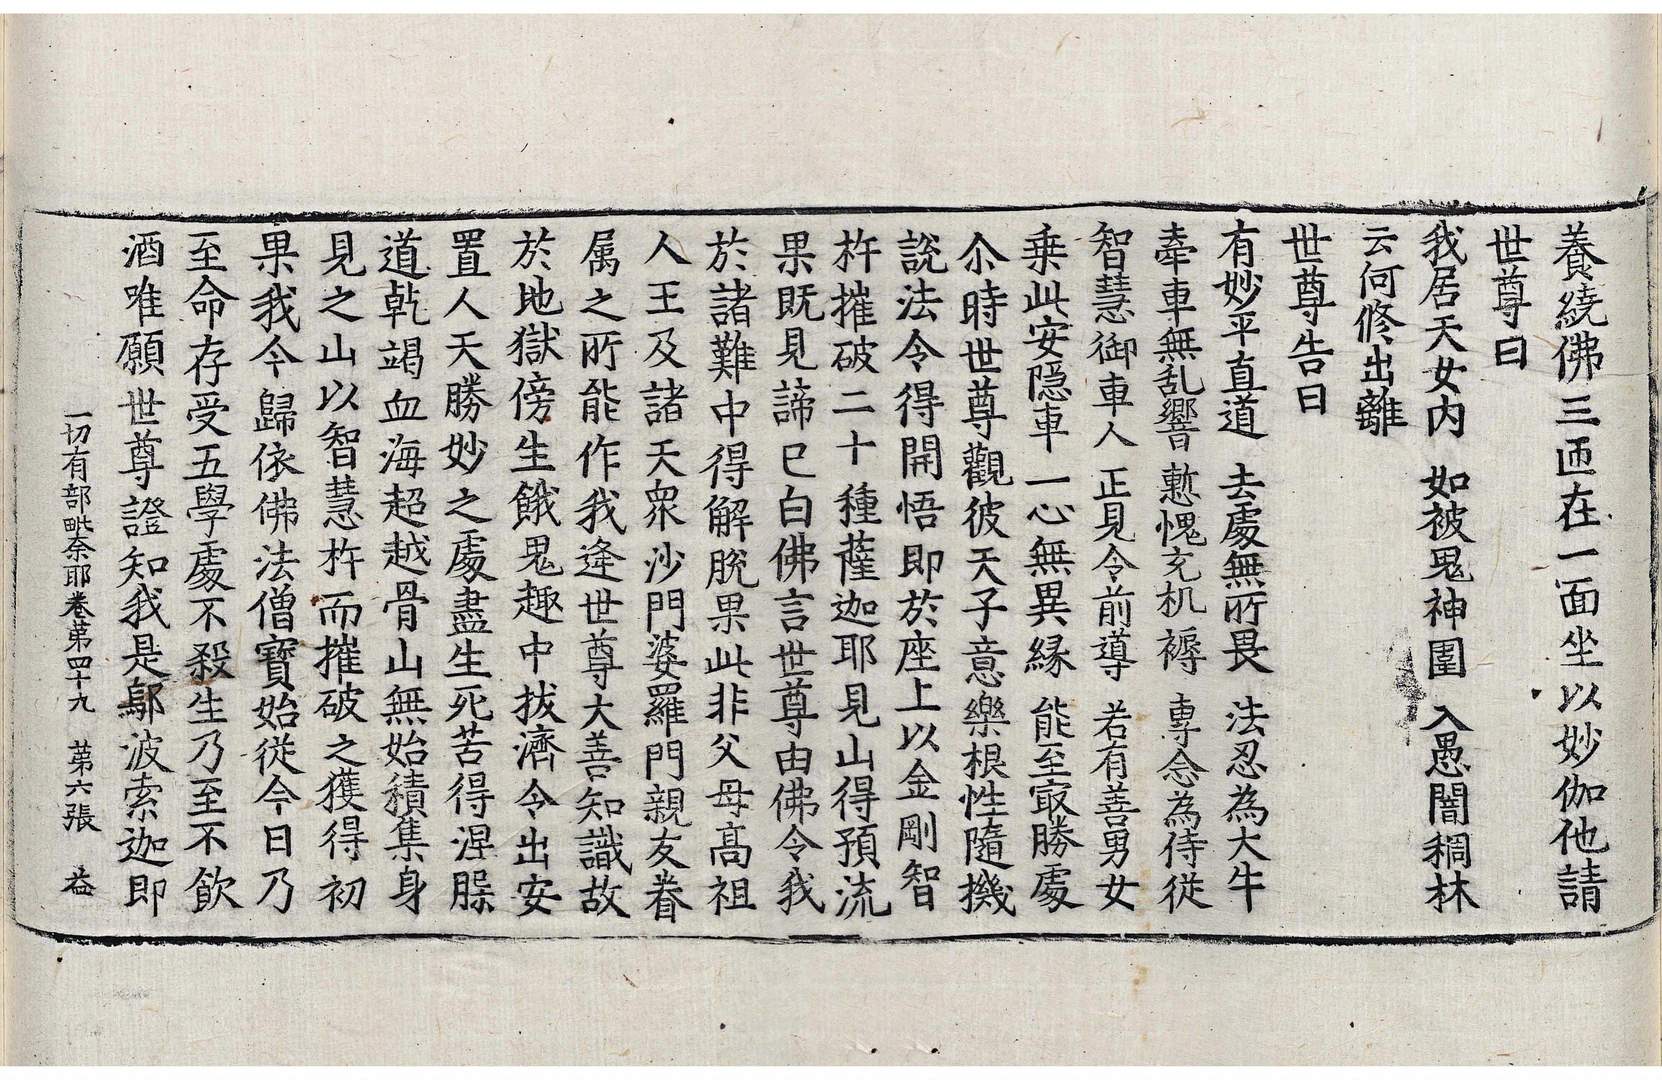 養繞佛三匝在一面坐以妙伽他請
世尊曰
我居天女內　如被鬼神圍　入愚闇稠林
云何修出離
世尊告曰
有妙平直道　去處無所畏　法忍為大牛
牽車無乱響　慙愧充机褥　專念為侍從
智慧御車人　正見令前導　若有善男女
乗此安隱車　一心無異緣　能至㝡勝處
尒時世尊觀彼天子意樂根性隨機
說法令得開悟即於座上以金剛智
杵摧破二十種薩迦耶見山得預流
果既見諦已白佛言世尊由佛令我
於諸難中得解脫果此非父母高祖
人王及諸天衆沙門婆羅門親友眷
属之所能作我逢世尊大善知識故
於地獄傍生餓鬼趣中拔濟令出安
置人天勝妙之處盡生死苦得涅槃
道乾竭血海超越骨山無始積集身
見之山以智慧杵而摧破之獲得初
果我今歸依佛法僧寶始從今日乃
至命存受五學處不殺生乃至不飲
酒唯願世尊證知我是鄔波索迦即
一切有部毗奈耶卷第四十九　第六張　益